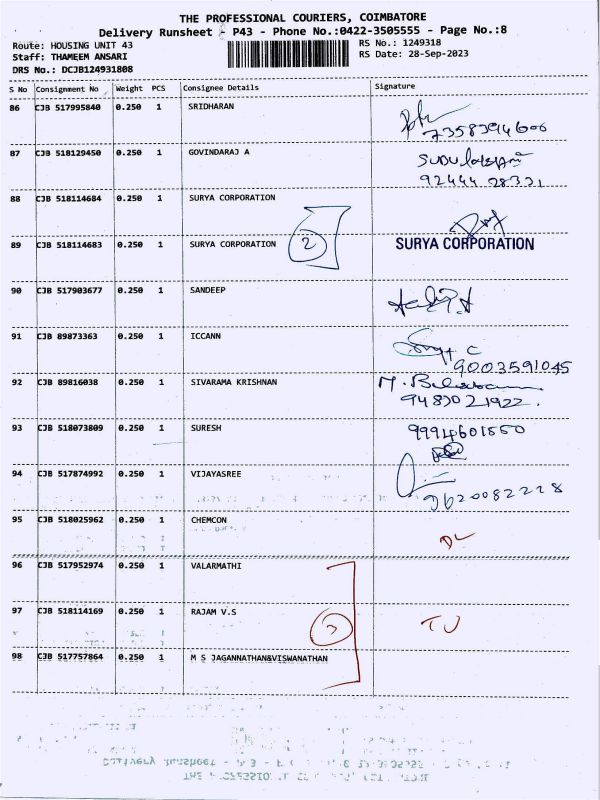 THE PROFESSIONAL COURIERS, COIMBATORE
Delivery Runsheet - P43 - Phone No.:0422-3505555 - Page No.:8
Route: HOUSING UNIT 43
Staff: THAMEEM ANSARI
DRS No.: DCJB124931808
RS No.: 1249318
RS Date: 28-Sep-2023
S No Consignment No Weight PCS Consignee Details Signature
86 CJB 517995840 0.250 1 SRIDHARAN
7358394606
87 CJB 518129450 0.250 1 GOVINDARAJ A
92444 28331
88 CJB 518114684 0.250 1 SURYA CORPORATION
2
89 CJB 518114683 0.250 1 SURYA CORPORATION SURYA CORPORATION
90 CJB 517903677 0.250 1 SANDEEP
91 CJB 89873363 0.250 1 ICCANN
9003591045
92 CJB 89816038 0.250 1 SIVARAMA KRISHNAN
9483021922.
93 CJB 518073809 0.250 1 SURESH 9994601550
94 CJB 517874992 0.250 1 VIJAYASREE
9620082228
95 CJB 518025962 0.250 1 CHEMCON
DL
96 CJB 517952974 0.250 1 VALARMATHI
97 CJB 518114169 0.250 1 RAJAM V.S
3 TU
98 CJB 517757864 0.250 1 M S JAGANNATHAN&VISWANATHAN